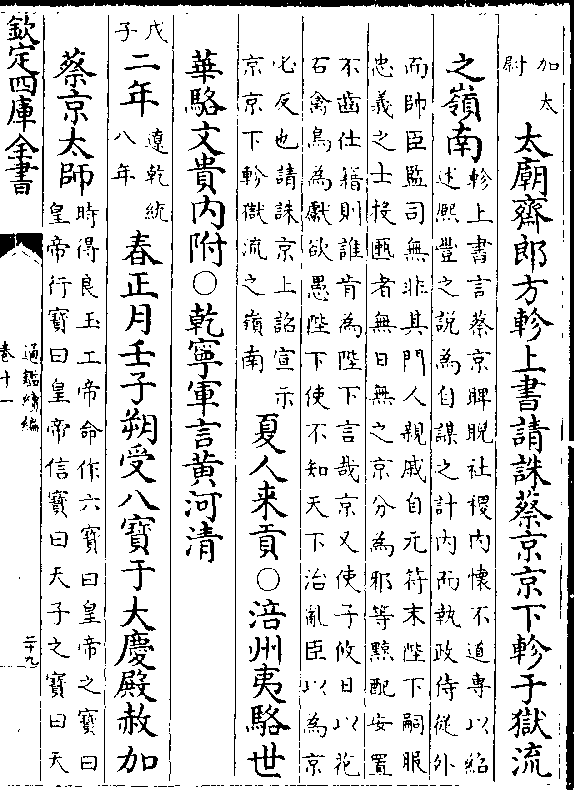 加太
尉
太廟齋郎方軫上書請誅蔡京京下軫于獄流
之嶺南
軫上書言蔡京睥睨社稷内懷不道専以紹
述熙豐之説為自謀之計内而執政侍從外
而帥臣監司無非其門人親戚自元符末陛下嗣服
忠義之士投匭者無日無之京分為邪等黥配安置
不齒仕籍則誰肯為陛下言哉京又使子攸日以花
石禽鳥為獻欲愚陛下使不知天下治亂臣以為京
必反也請誅京上詔宣示
京京下軫獄流之嶺南
夏人来貢○涪州夷駱世
華駱文貴内附○乾寧軍言黄河清
戊
子
二年
遼乾統
八年
春正月壬子朔受八寶于大慶殿赦加
蔡京太師
時得良玉工帝命作六寶曰皇帝之寶曰
皇帝行寶曰皇帝信寶曰天子之寶曰天
欽定四庫全書
通鑑續編
卷十一
二十九